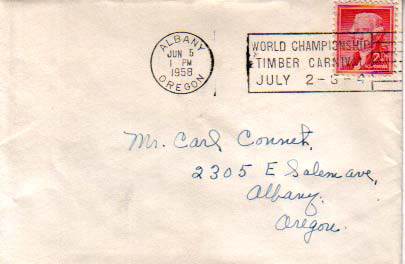 ALBANY
JUN 5
1 PM
1958
OREGON
WORLD CHAMPIONSHIP
TIMBER CARNIVAL
JULY 2-3-4
2¢
Mr. Carl Connet,
2305 E Salem ave,
Albany.
Oregon.